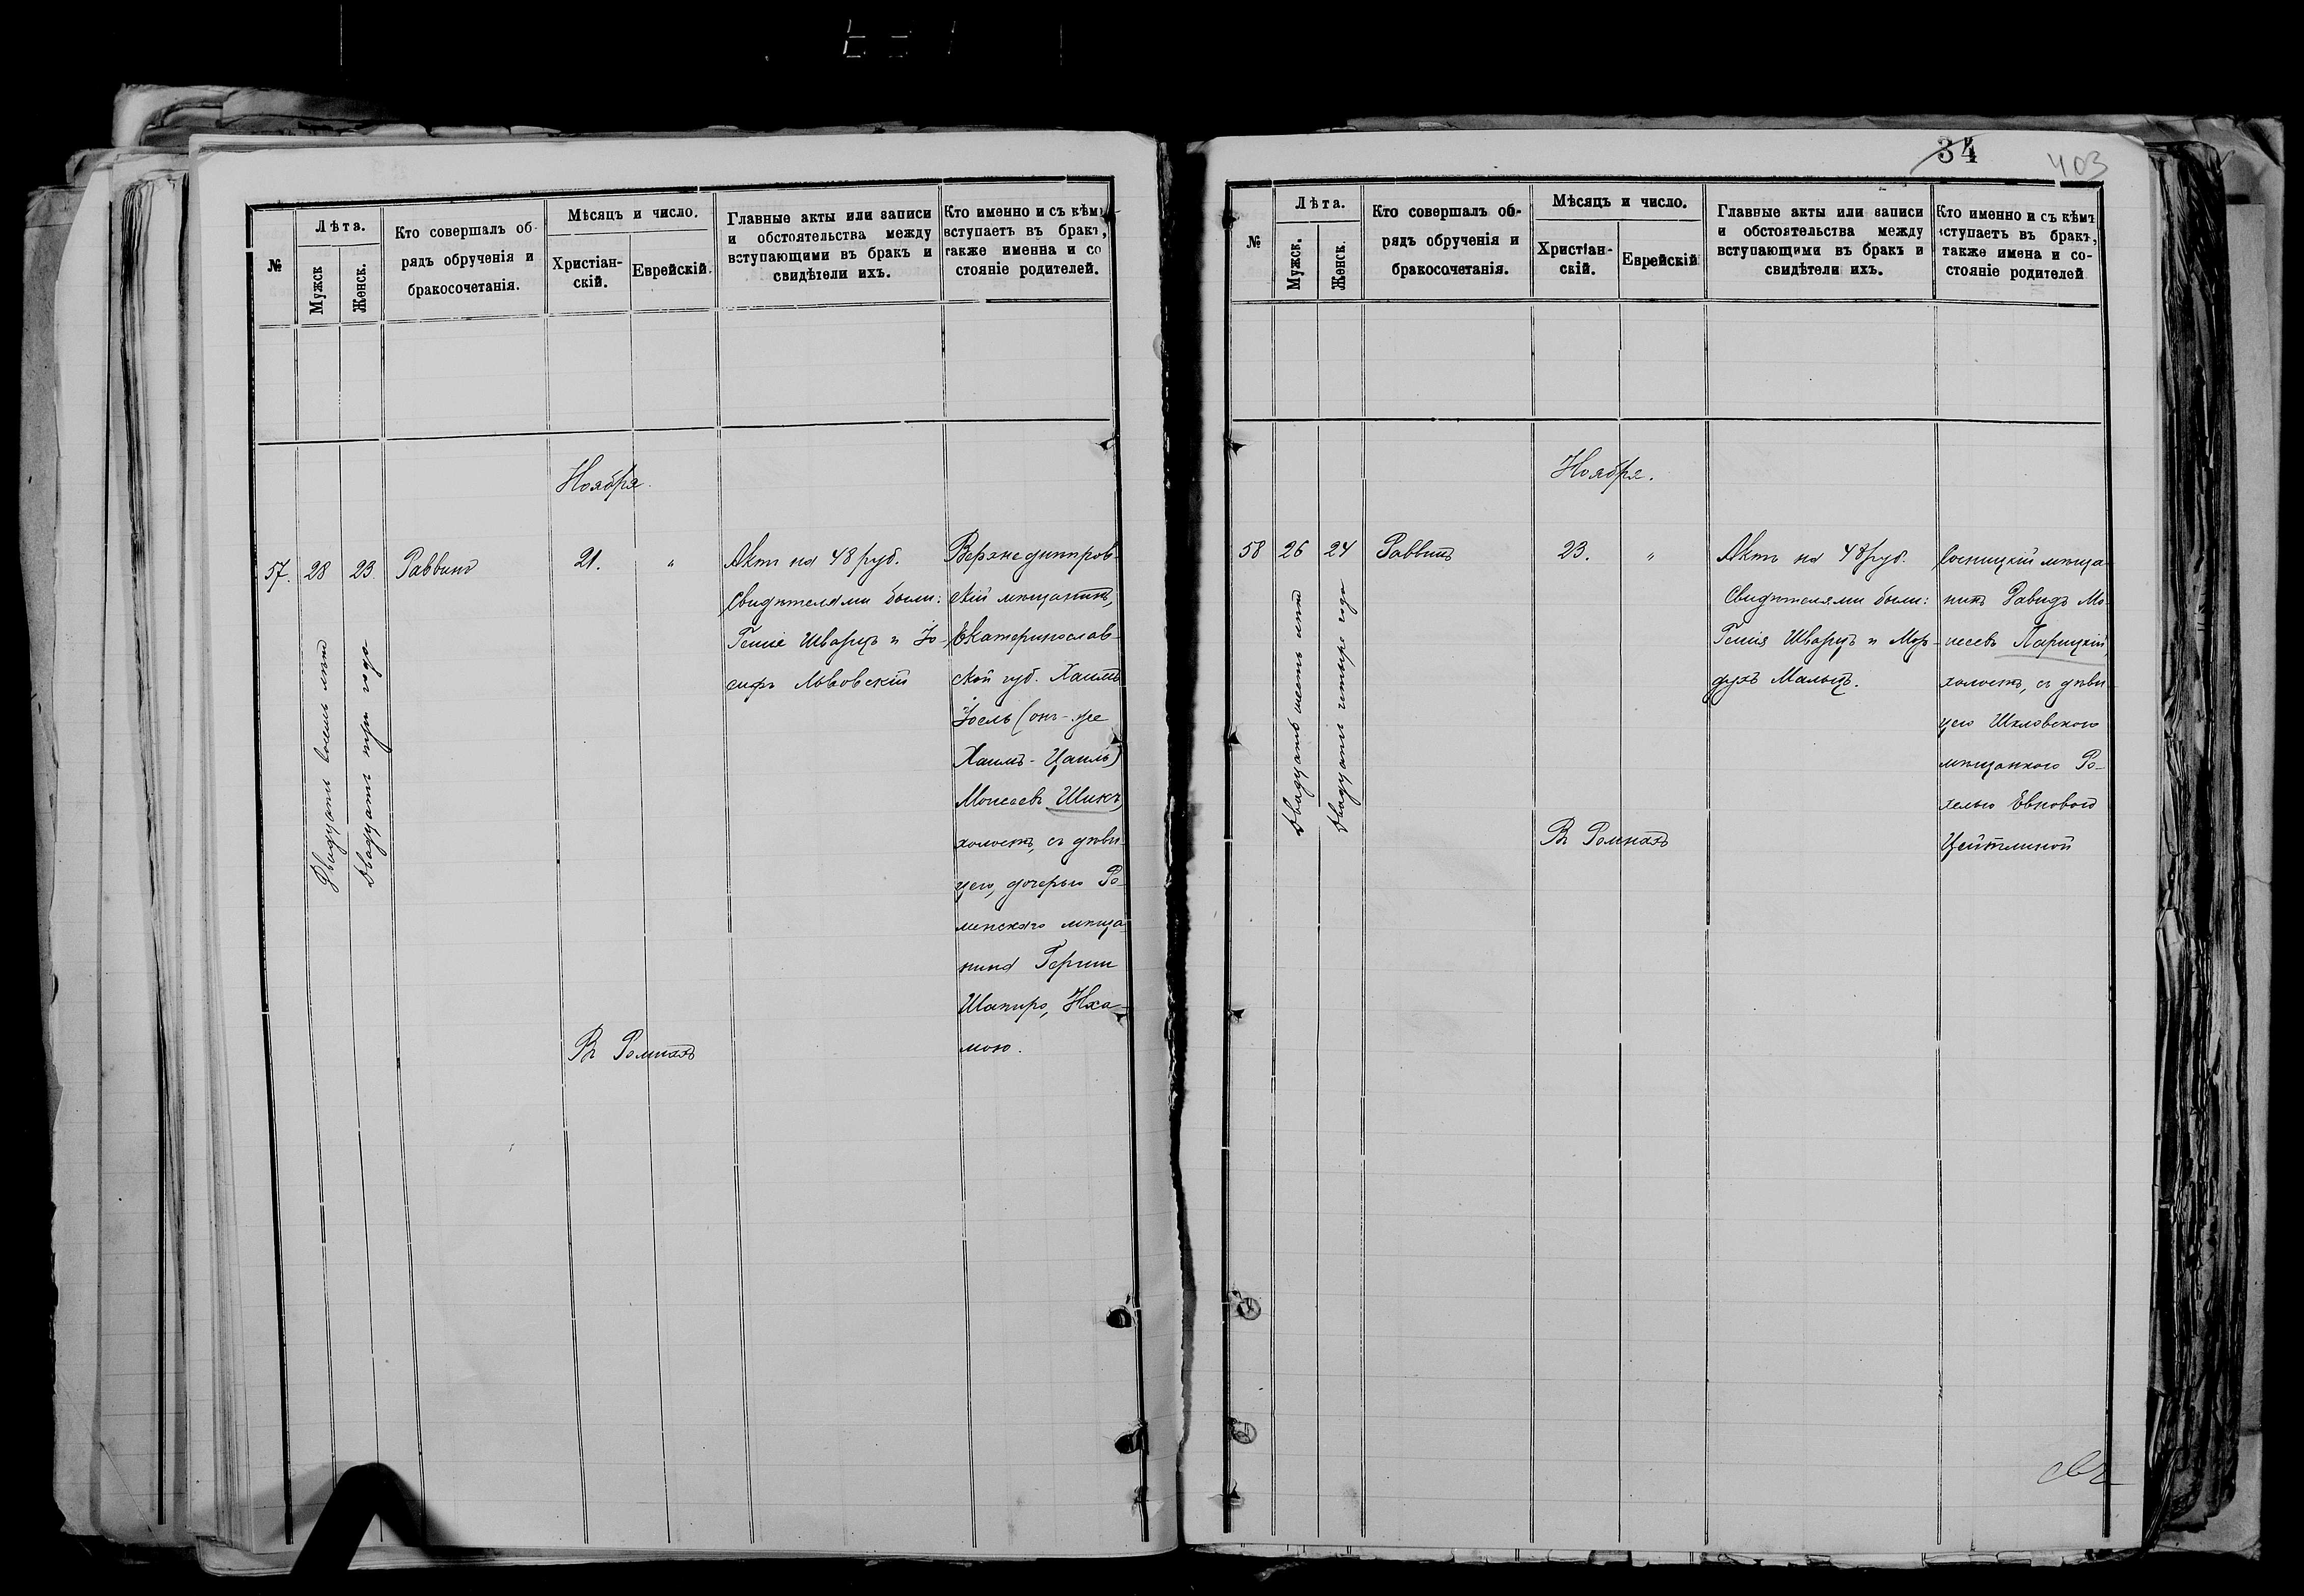 №
Лѣта.
Мужск
Женск.
Кто совершалъ об-
рядъ обрученія и
бракосочетанія.
Мѣсяцъ и число.
Христіан-
скій.
Еврейскій.
Главные акты или записи
и обстоятельства между
вступающими въ бракъ и
свидѣтели ихъ.
Кто именно и съ кѣмъ
вступаетъ въ бракъ,
также имена и со
стояніе родителей.
Ноября.
57.
28
23
Двадцать восемь лѣтъ
Двадцать три года
Раввинъ
21.
"
Актъ на 48 руб.
Свидѣтелями были:
Гешіе Шварцъ и Іо-
сифъ Львовскій
Верхнеднѣпров-
скій мѣщанинъ,
Екатеринослав-
ской губ. Хаимъ
Іосль (онъ-же
Хаимъ-Цаиль)
Моисеевъ Шикъ,
холостъ, съ дѣви-
цею, дочерью Ро-
менскаго мѣща-
нина Герши
Шапиро, Неха-
мою.
Въ Ромнахъ
34
403
№
Лѣта.
Мужск.
Женск.
Кто совершалъ об-
рядъ обрученія и
бракосочетанія.
Мѣсяцъ и число.
Христіан-
скій.
Еврейскій
Главные акты или записи
и обстоятельства между
вступающими въ бракъ и
свидѣтели ихъ.
Кто именно и съ кѣмъ
вступаетъ въ бракъ,
также имена и со-
стояніе родителей
Ноября.
58
26
24
Двадцать шесть лѣтъ
Двадцать четыре года
Раввинъ
23.
"
Актъ на 48 руб.
Свидѣтелями были:
Гешія Шварцъ и Мор-
духъ Мальцъ.
Сосницкій мѣща-
нинъ Давидъ Мо-
исеевъ Парицкій,
холостъ, съ дѣви-
цею Шкловскою
мѣщанкою Ро-
хелью Евновою
Цейтлиной
Въ Ромнахъ